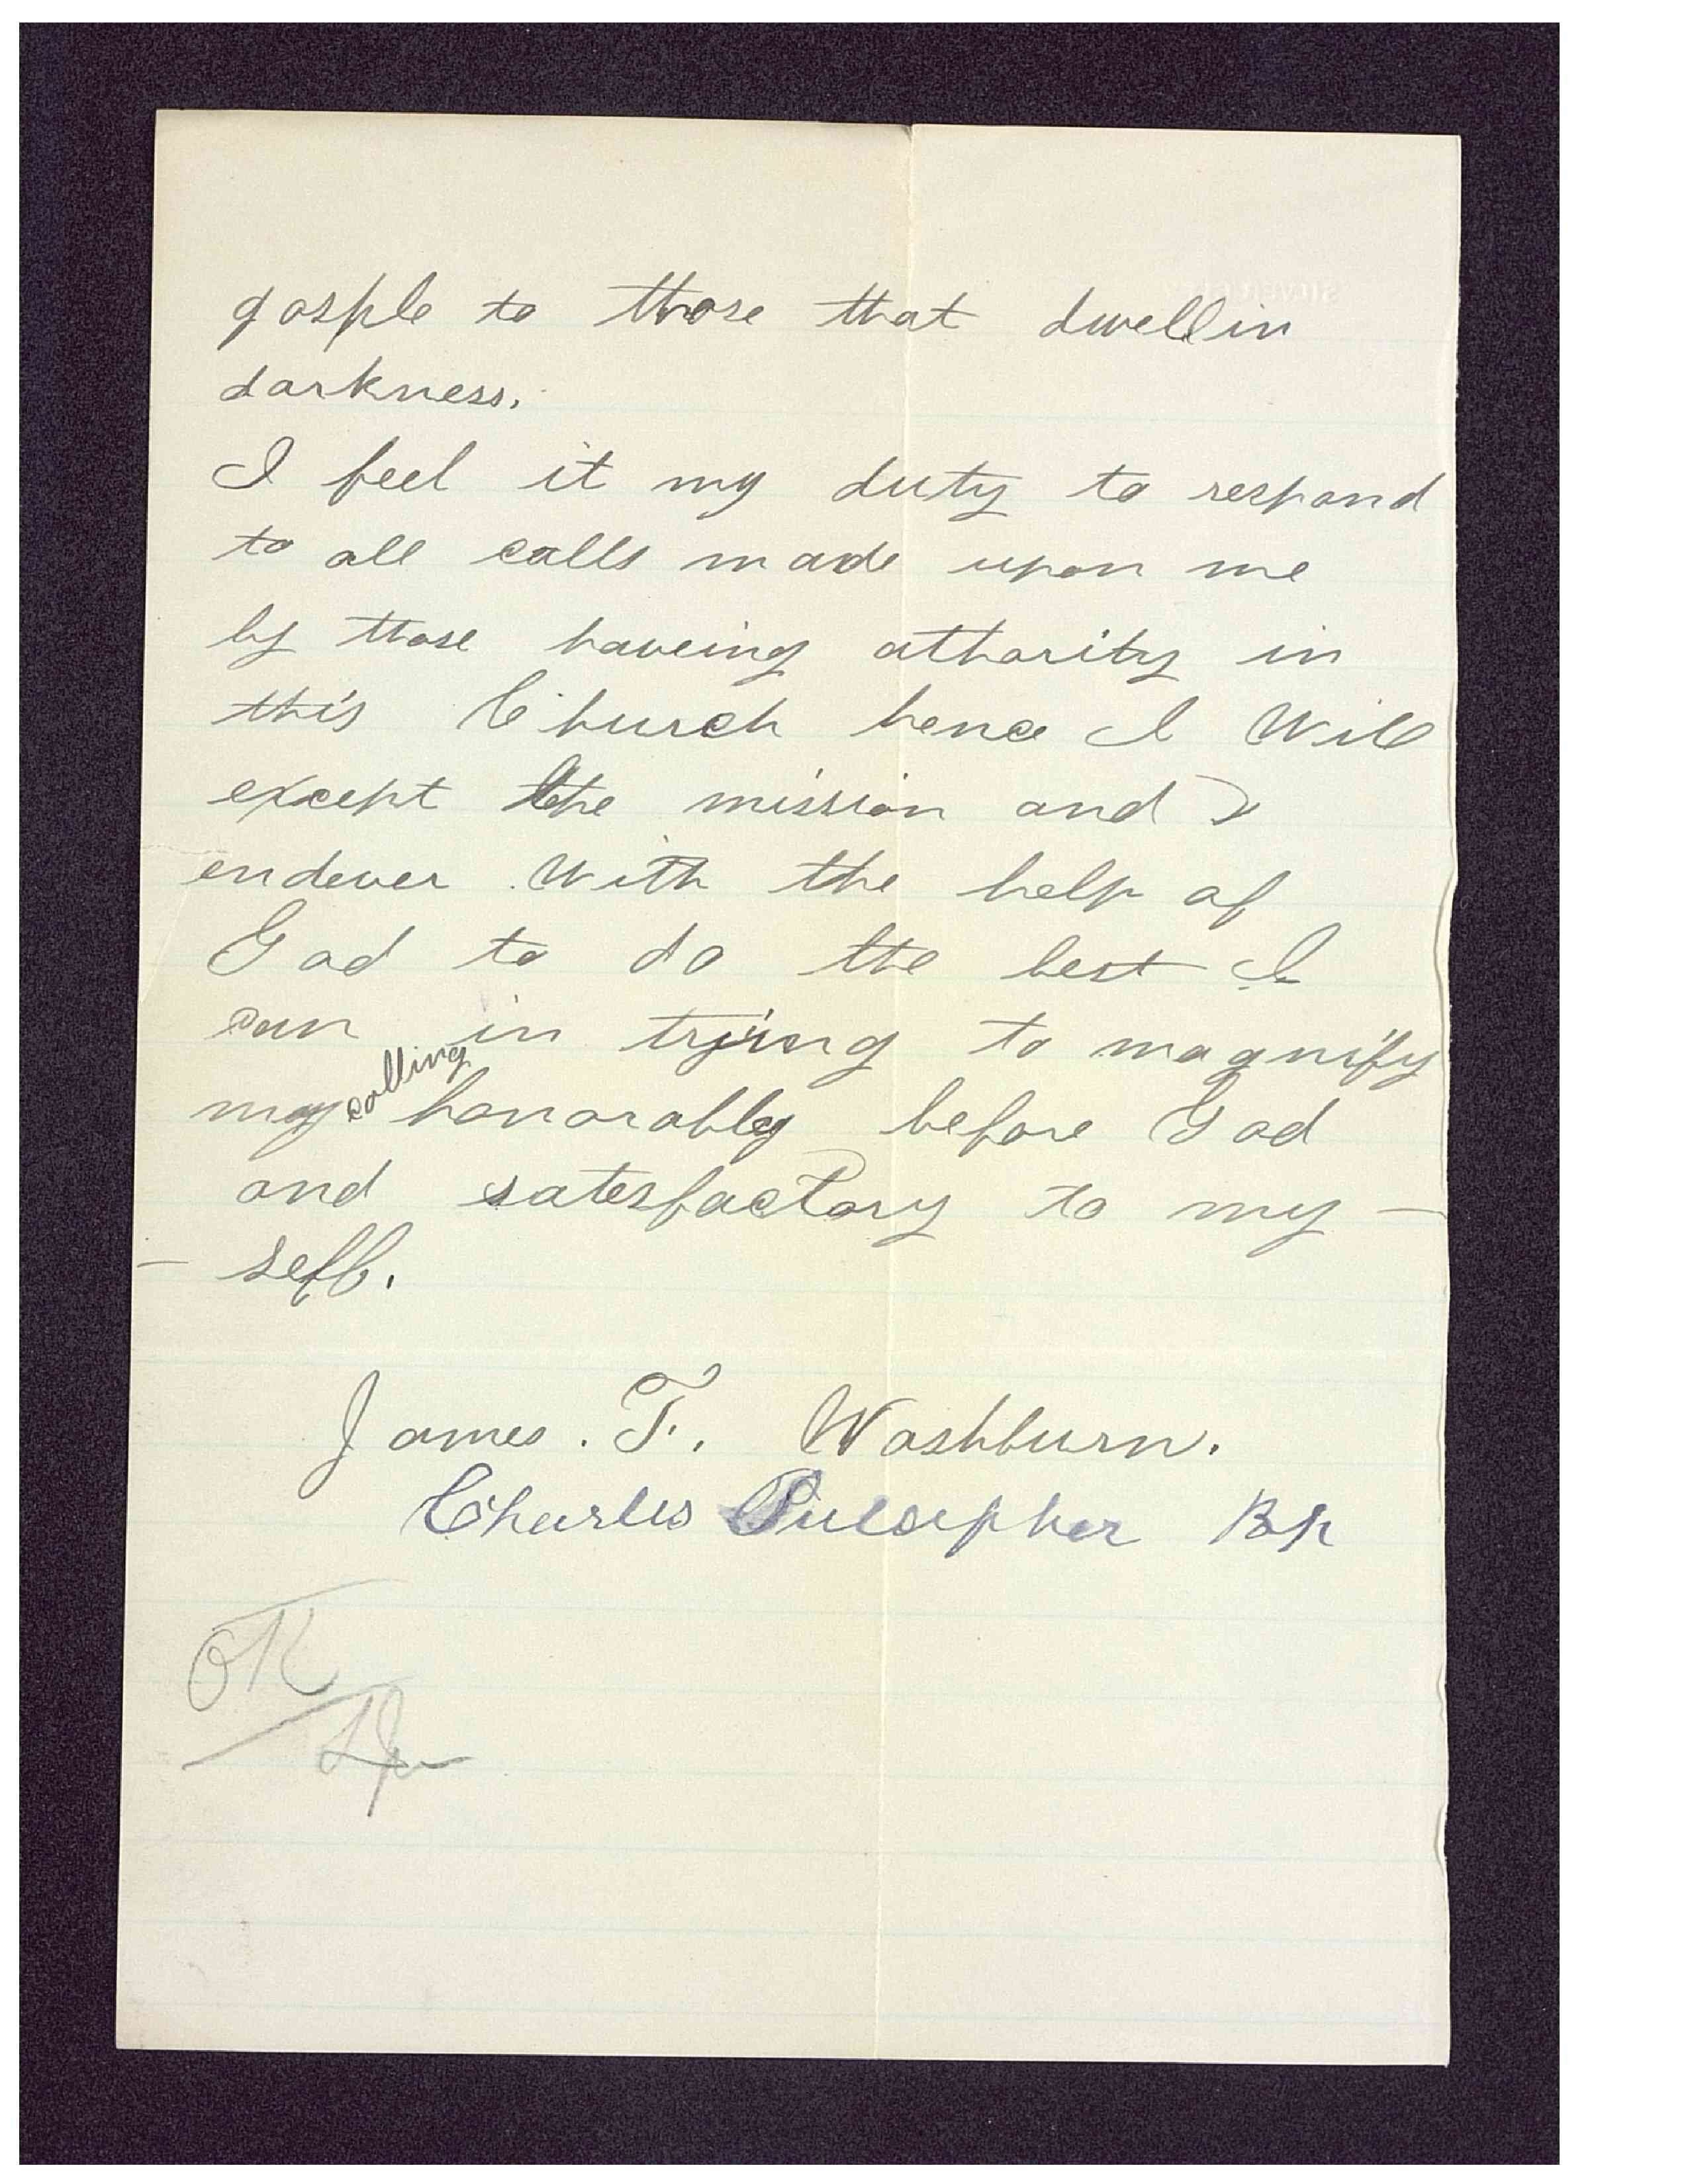 gosple to those that dwell in
darkness.
I feel it my duty to respond
to all calls made upon me
by those haveing athority in
this Church hence I Will
except the mission and I
endever With the help of
God to do the best I
can in trying to magnify
my calling honorably before God
and satesfactory to my -
- self.
James. T. Washburn.
Charles Pulsipher Bp
OK